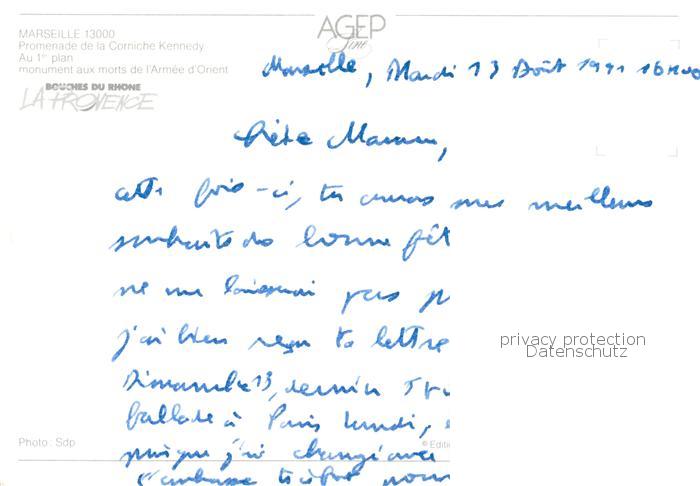 AGEP
Ciné
MARSEILLE 13000
Promenade de la Corniche Kennedy
Au 1er plan
monument aux morts de l'Armée d'Orient
BOUCHES DU RHONE
LA PROVENCE
Marseille, Mardi 13 Août 1991 16H00
Chère Maman,
cette fois-ci, tu auras mes meilleurs
souhaits de bonne fêt
ne me laisserai pas p
j'ai bien reçu ta lettre
privacy protection
Datenschutz
Dimanche 13, dernier
ballade à Paris lundi,
puisque j'ai changé avec
Photo : Sdp
© Editi